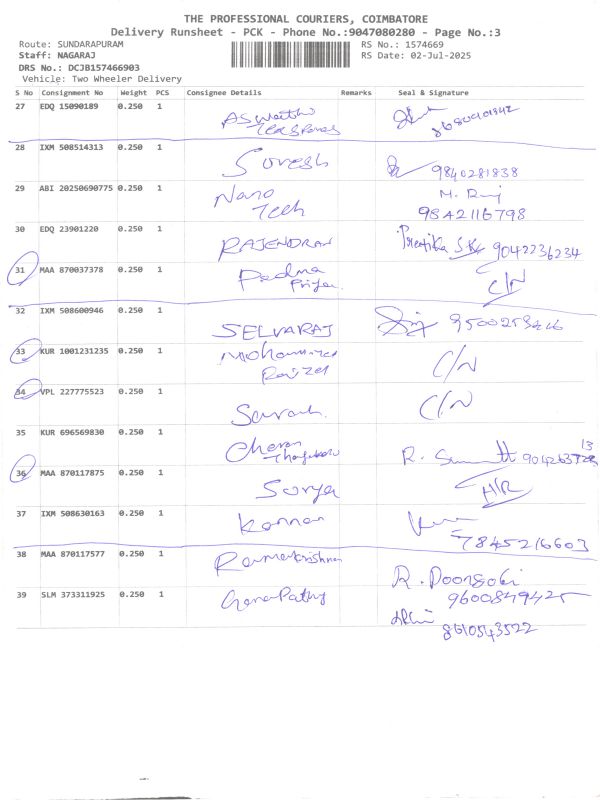 THE PROFESSIONAL COURIERS, COIMBATORE
Delivery Runsheet - PCK - Phone No.:9047080280 - Page No.:3
Route: SUNDARAPURAM RS No.: 1574669
Staff: NAGARAJ RS Date: 02-Jul-2025
DRS No.: DCJB157466903
Vehicle: Two Wheeler Delivery
S No Consignment No Weight PCS Consignee Details Remarks Seal & Signature
27 EDQ 15090189 0.250 1
28 IXM 508514313 0.250 1 Suresh 9840281838
29 ABI 20250690775 0.250 1 Nano M. Raj
Tech 9842116798
30 EDQ 23901220 0.250 1 RAJENDRAN Preetika S.K 9042236234
31 MAA 870037378 0.250 1 Padma C/N
Priya
32 IXM 508600946 0.250 1 SELVARAJ
33 KUR 1001231235 0.250 1 Mohammed C/N
34 VPL 227775523 0.250 1 Sarath C/N
35 KUR 696569830 0.250 1 Cheran R.
36 MAA 870117875 0.250 1 Surya H/R
37 IXM 508630163 0.250 1 Kannan
7845216603
38 MAA 870117577 0.250 1 Ramakrishnan R. Poongodi
9600849425
39 SLM 373311925 0.250 1 GanaPathy
8610543522